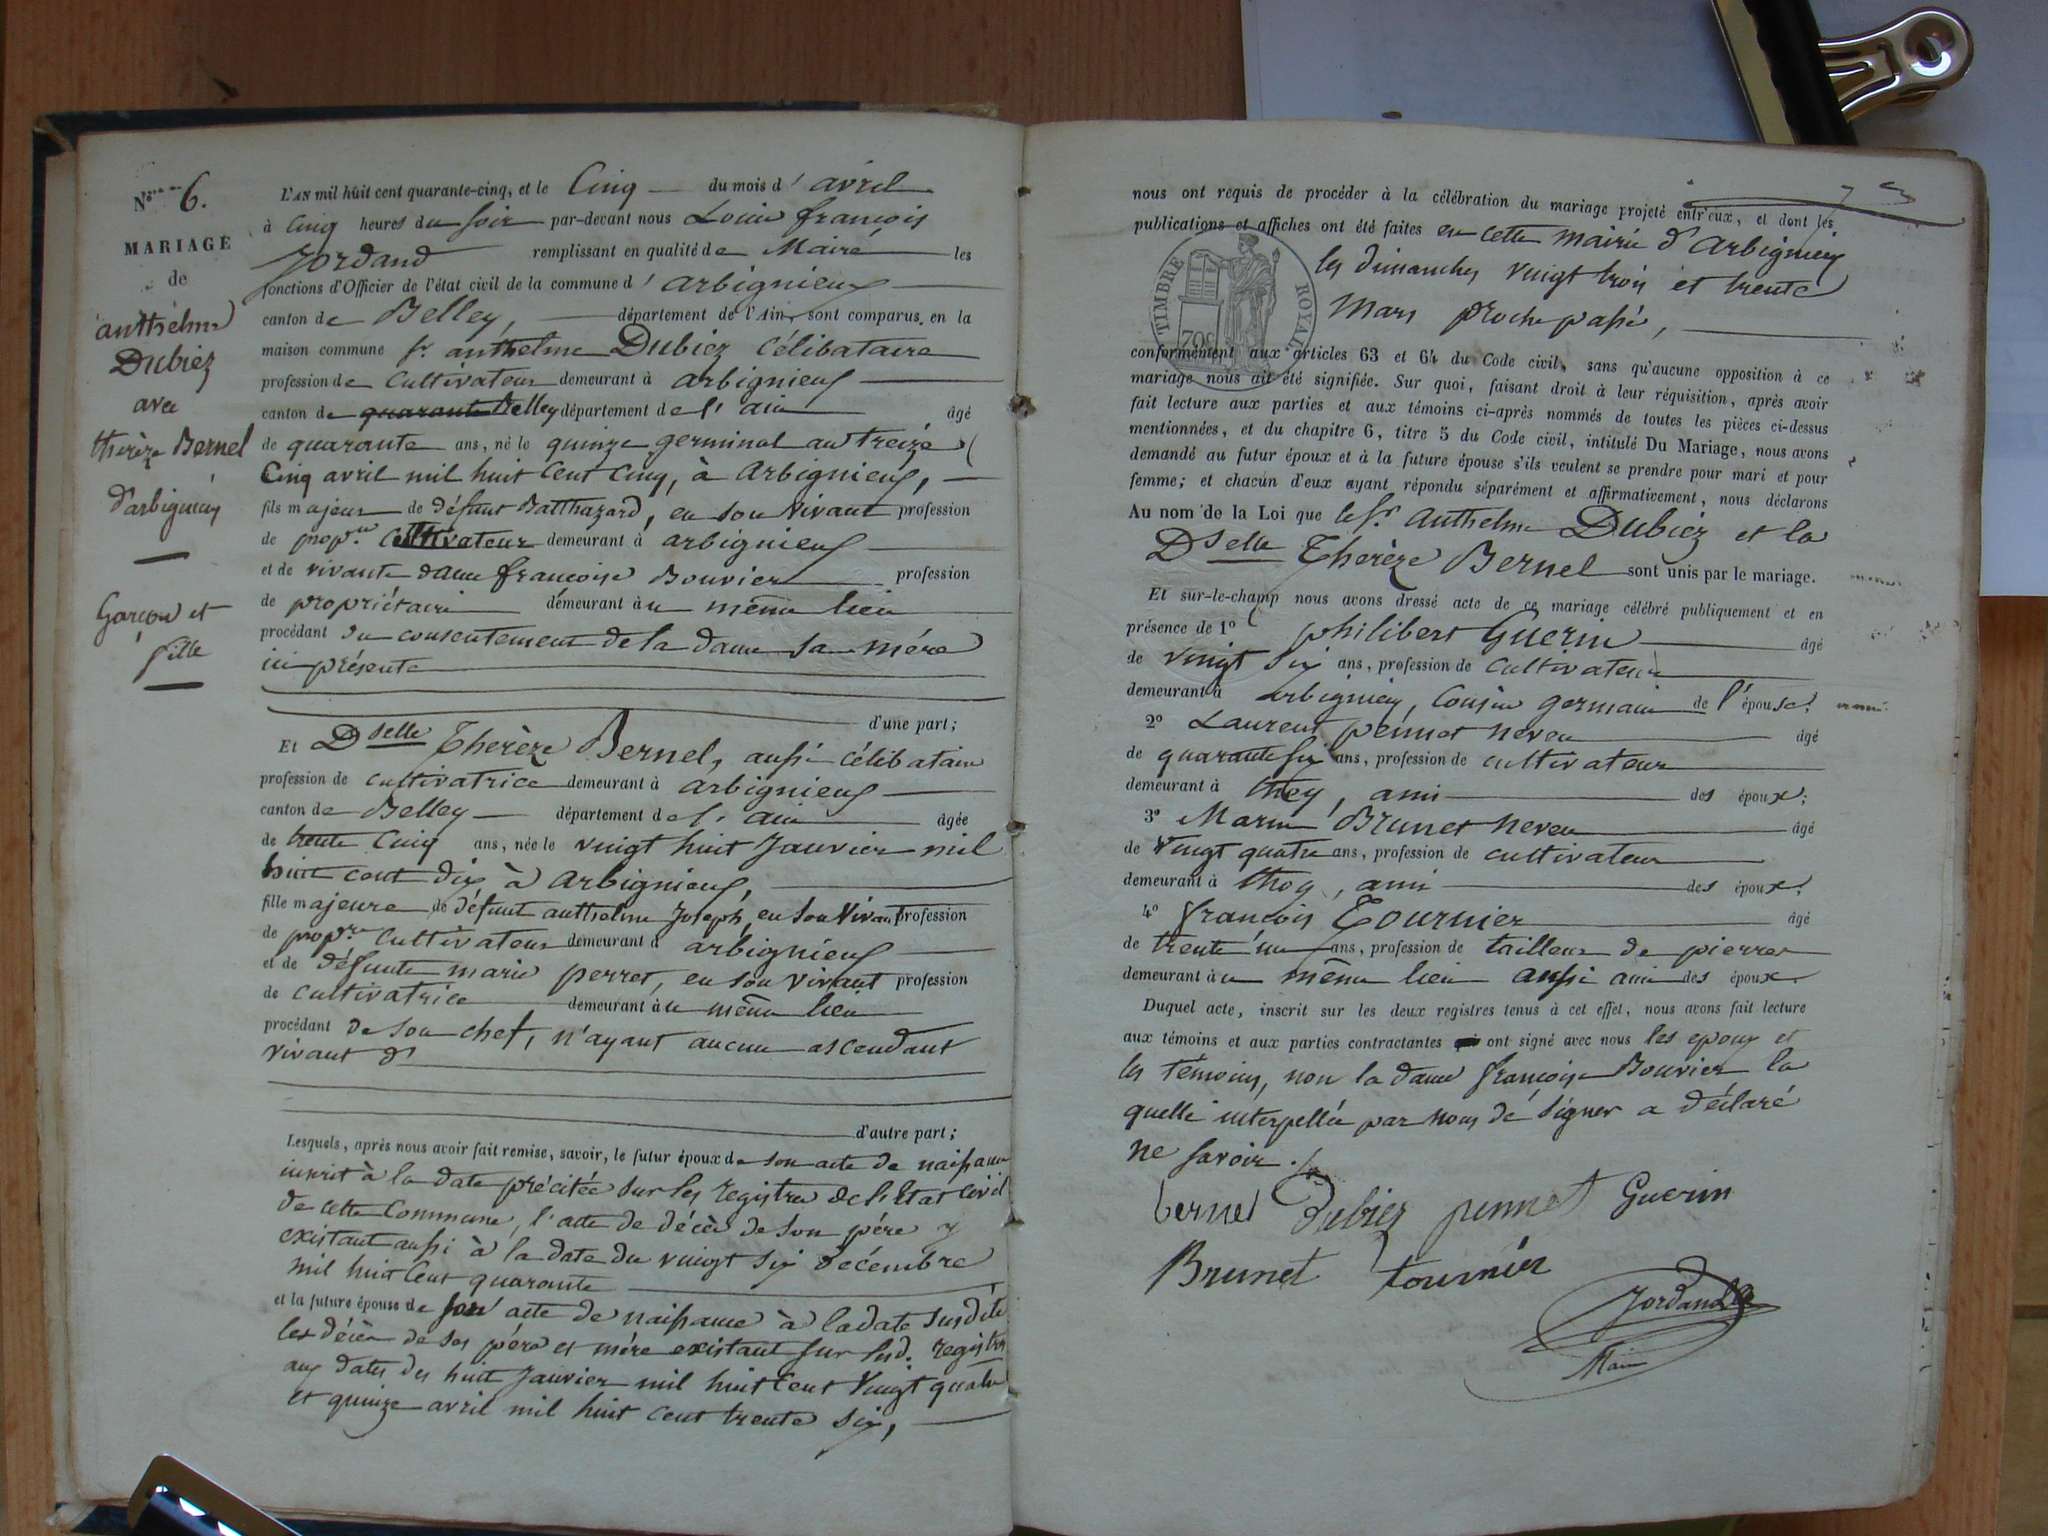 N.° 6.
MARIAGE
de
anthelme
Dubiez
avec
thérèze Bernel
d'arbignieu
Garçon et
fille
L'AN mil huit cent quarante-cinq, et le Cinq du mois d' avril
à cinq heures du soir par-devant nous Louis françois
Jordand remplissant en qualité de Maire les
fonctions d'Officier de l'état civil de la commune d' arbignieux
canton de Belley, département de l'Ain, sont comparus, en la
maison commune s.r anthelme Dubiez Célibataire
profession de Cultivateur demeurant à arbignieux
canton de quarante Belley département de l' ain âgé
de quarante ans, né le quinze germinal an treize (
Cinq avril mil huit Cent Cinq, à arbignieux,
fils majeur de défunt Balthazard, en son vivant profession
de prop.re Cultivateur demeurant à arbignieux
et de vivante dame françoise Bouvier profession
de propriétaire demeurant au même lieu
procédant du consentement de la dame sa mère
ici présente
d'une part;
Et Dselle Therèze Bernel, aussi célibataire
profession de cultivatrice demeurant à arbignieux
canton de Belley département de l' ain âgée
de trente Cinq ans, née le vingt huit Janvier mil
huit cent dix à arbignieux,
fille majeure de défunt anthelme Joseph, en son vivant profession
de prop.re cultivateur demeurant à arbignieux
et de défunte marie perret, en son vivant profession
de cultivatrice demeurant au même lieu
procédant de son chef, n'ayant aucun ascendant
vivant
d'autre part;
Lesquels, après nous avoir fait remise, savoir, le futur époux de son acte de naissance
inscrit à la date précitée sur les registres de l'Etat civil
de cette Commune, l'acte de décès de son père y
existant aussi à la date du vingt six décembre
mil huit Cent quarante
et la future épouse de son acte de naissance à la date susdite
les décès de ses père et mère existant sur lesd. registres
aux dates des huit Janvier mil huit Cent vingt quatre
et quinze avril mil huit cent trente six,
nous ont requis de procéder à la célébration du mariage projeté entr'eux, et dont les
publications et affiches ont été faites en cette mairie d'arbignieu
les dimanches vingt trois et trente
mars proche passé,
TIMBRE ROYAL
70c
conformément aux articles 63 et 64 du Code civil, sans qu'aucune opposition à ce
mariage nous ait été signifiée. Sur quoi, faisant droit à leur réquisition, après avoir
fait lecture aux parties et aux témoins ci-après nommés de toutes les pièces ci-dessus
mentionnées, et du chapitre 6, titre 5 du Code civil, intitulé Du Mariage, nous avons
demandé au futur époux et à la future épouse s'ils veulent se prendre pour mari et pour
femme; et chacun d'eux ayant répondu séparément et affirmativement, nous déclarons
Au nom de la Loi que le s.r Anthelme Dubiez et la
Dselle Therèze Bernel sont unis par le mariage.
Et sur-le-champ nous avons dressé acte de ce mariage célébré publiquement et en
présence de 1° philibert Guerin âgé
de vingt six ans, profession de cultivateur
demeurant à arbignieu, Cousin germain de l'épouse;
2° Laurent pennet neveu âgé
de quarante six ans, profession de cultivateur
demeurant à thoy, ami des époux;
3° Marin Brunet neveu âgé
de vingt quatre ans, profession de cultivateur
demeurant à thoy, ami des époux;
4° françois Tournier âgé
de trente un ans, profession de tailleur de pierres
demeurant au même lieu aussi ami des époux.
Duquel acte, inscrit sur les deux registres tenus à cet effet, nous avons fait lecture
aux témoins et aux parties contractantes qui ont signé avec nous les epoux et
les témoins, non la dame françoise Bouvier la
quelle interpellée par nous de signer a déclaré
ne savoir.
bernel Dubiez pennet Guerin
Brunet tournier
Jordand
Maire